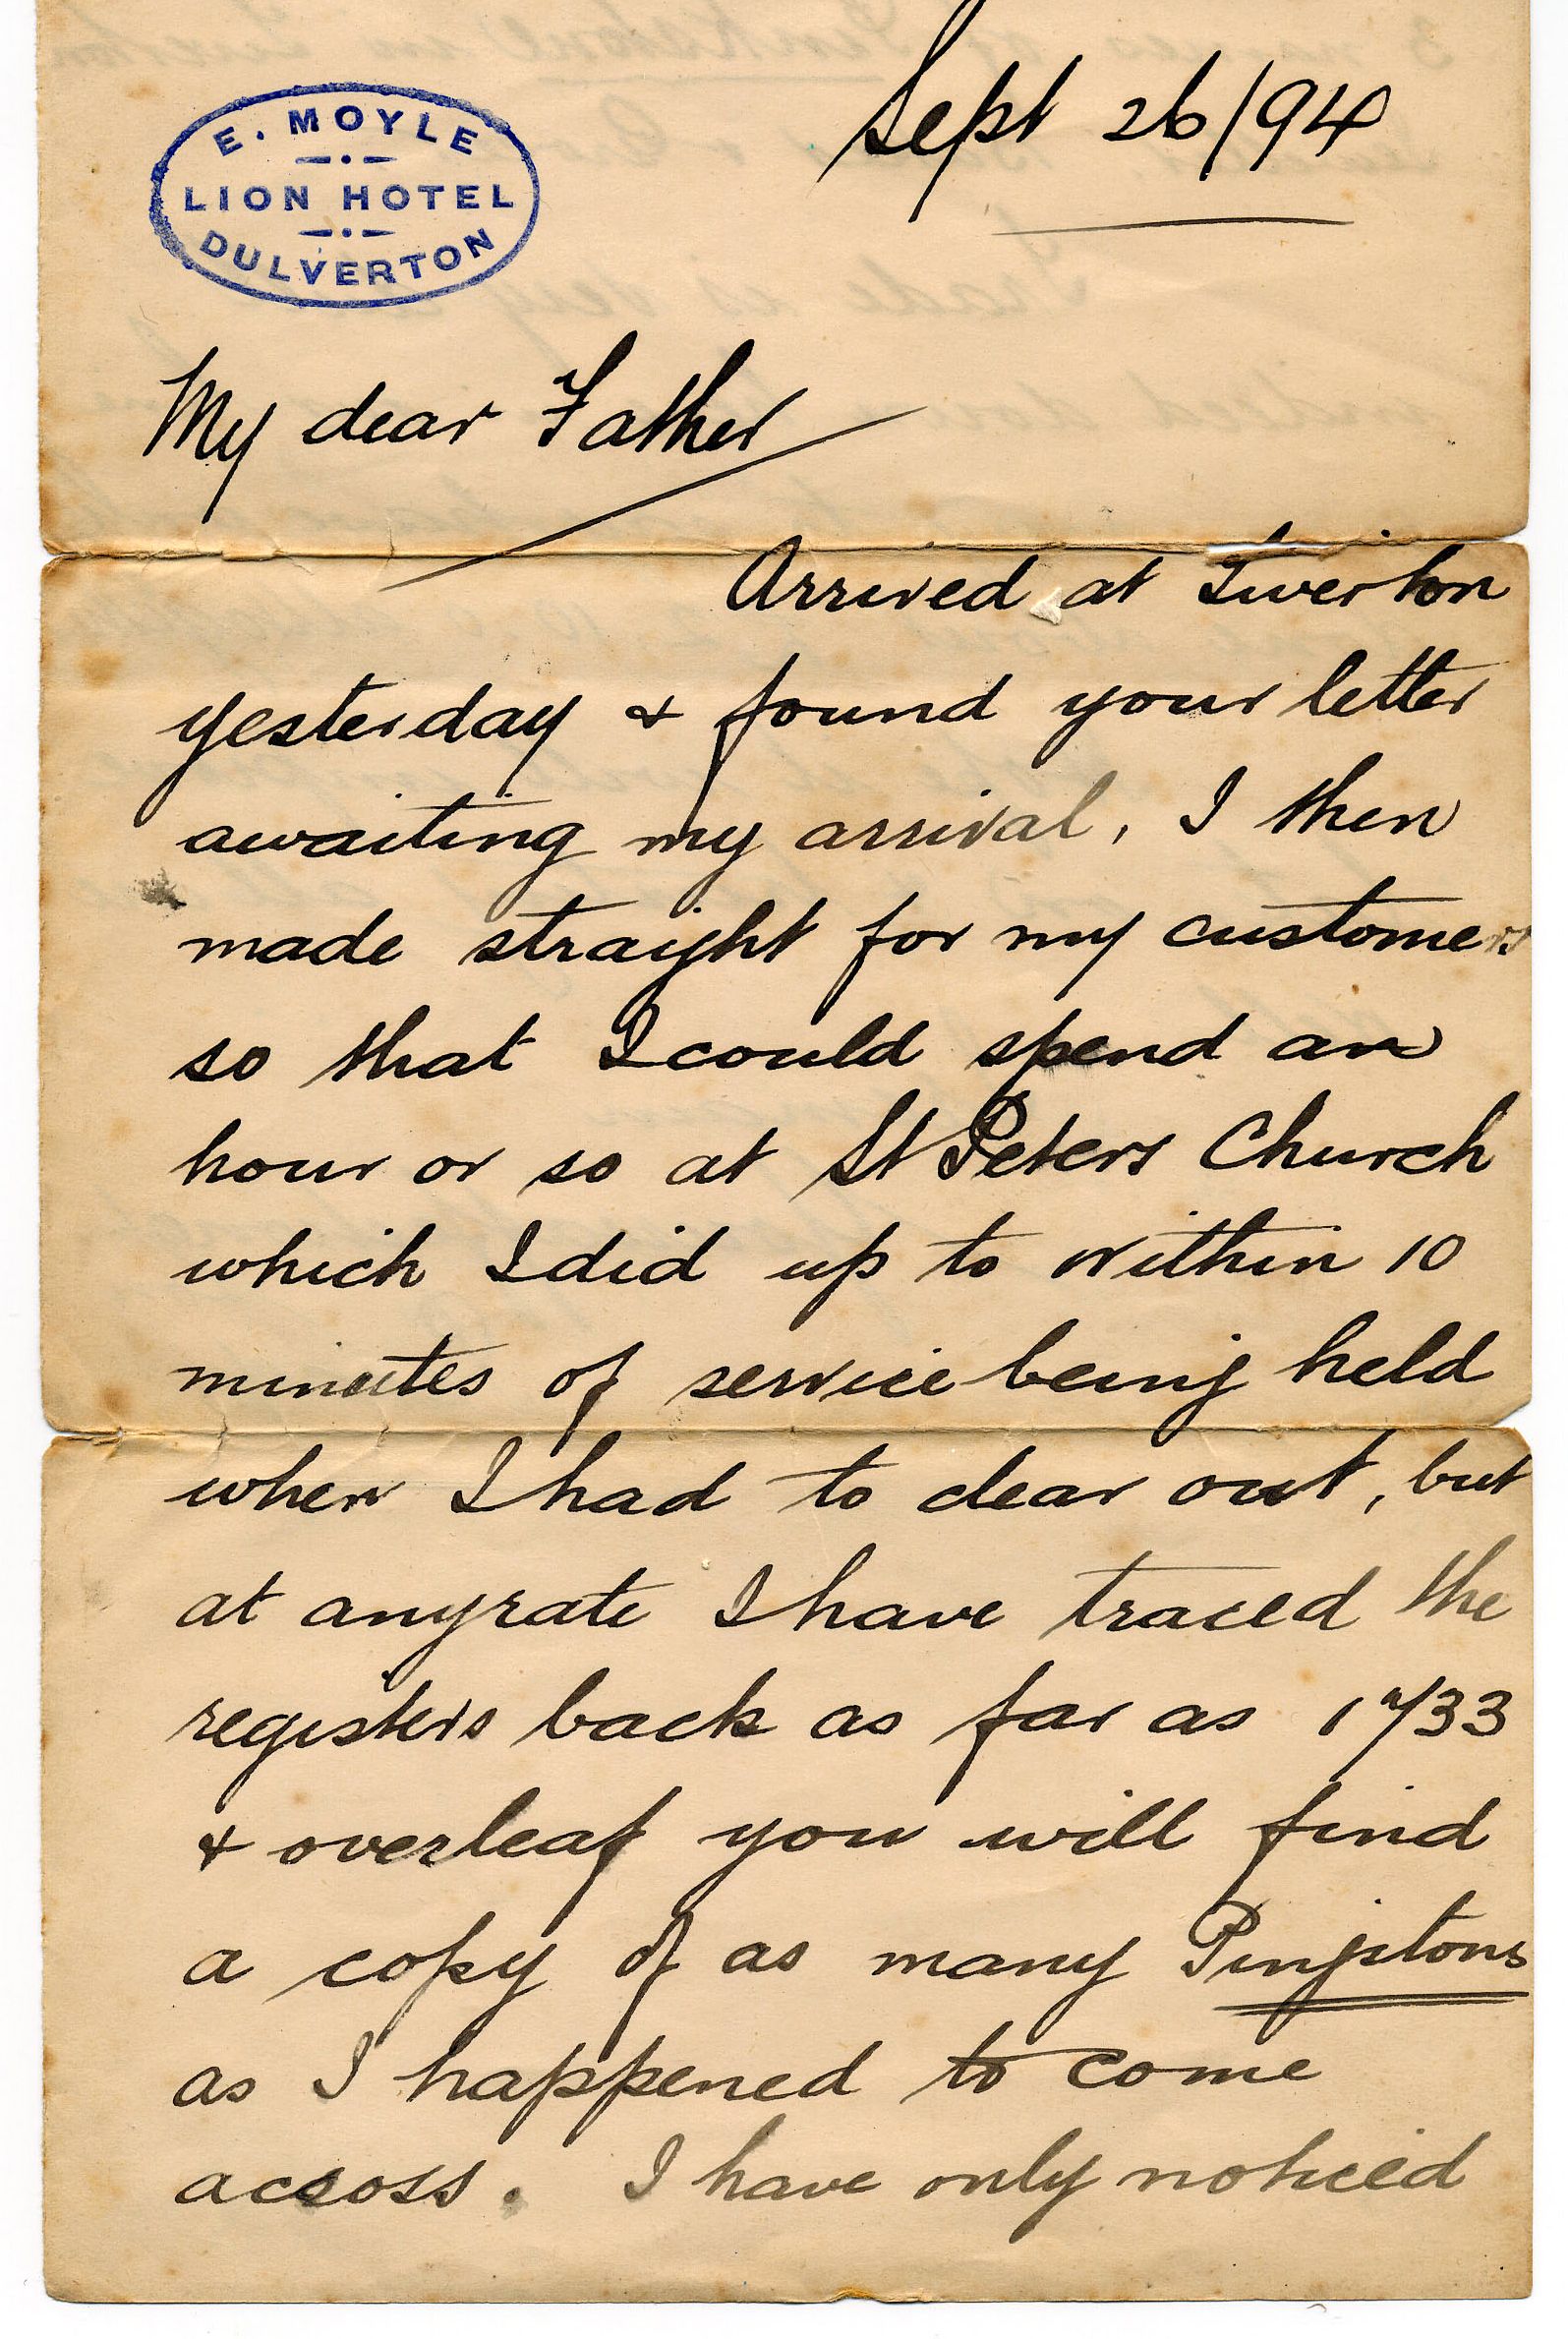 Sept 26/94
E. MOYLE
LION HOTEL
DULVERTON
My dear Father
Arrived at Tiverton
yesterday & found your letter
awaiting my arrival, I then
made straight for my customers
so that I could spend an
hour or so at St Peters Church
which I did up to within 10
minutes of service being held
when I had to clear out, but
at anyrate I have traced the
registers back as far as 1733
& overleaf you will find
a copy of as many Pingstons
as I happened to come
across. I have only noticed